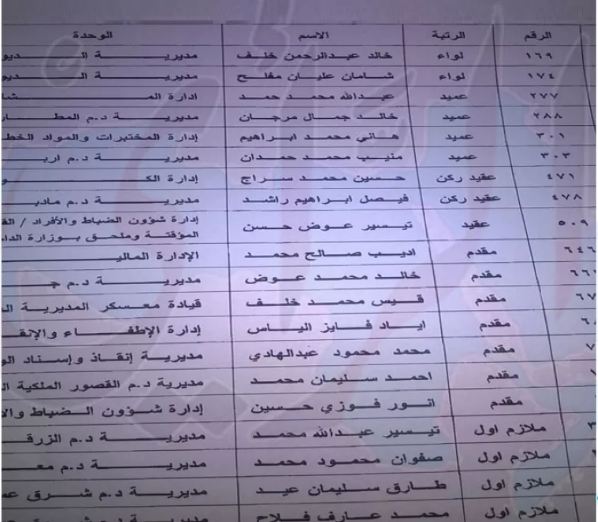 الرقم الرتبة الاسم الوحدة
١٦٩ لواء خالد عبدالرحمن خلف مديرية الديو
١٧٤ لواء شامان عليان مفلح مديرية الديو
٢٧٧ عميد عبدالله محمد حمد إدارة المشا
٢٨٨ عميد خالد جمال مرجان مديرية د.م المطار
٣٠١ عميد هاني محمد ابراهيم إدارة المختبرات والمواد الخط
٣٠٣ عميد منيب محمد حمدان مديرية د.م ارب
٤٧١ عقيد ركن حسين محمد سراج إدارة الكو
٤٧٨ عقيد ركن فيصل ابراهيم راشد مديرية د.م مادب
٥٠٩ عقيد تيسير عوض حسن إدارة شؤون الضباط والأفراد / الق
المؤقتة وملحق بوزارة الدا
٦٤٦ مقدم اديب صالح محمد الإدارة المالي
٦٦ مقدم خالد محمد عوض مديرية د.م ج
٦٧ مقدم قيس محمد خلف قيادة معسكر المديرية ال
٦ مقدم اياد فايز الياس إدارة الإطفاء والإنق
٧ مقدم محمد محمود عبدالهادي مديرية إنقاذ وإسناد الو
مقدم احمد سليمان محمد مديرية د.م القصور الملكية ال
مقدم انور فوزي حسين إدارة شؤون الضباط والا
ملازم اول تيسير عبدالله محمد مديرية د.م الزرق
ملازم اول صفوان محمود محمد مديرية د.م مع
ملازم اول طارق سليمان عيد مديرية د.م شرق عم
ملازم اول محمد عارف فلاح